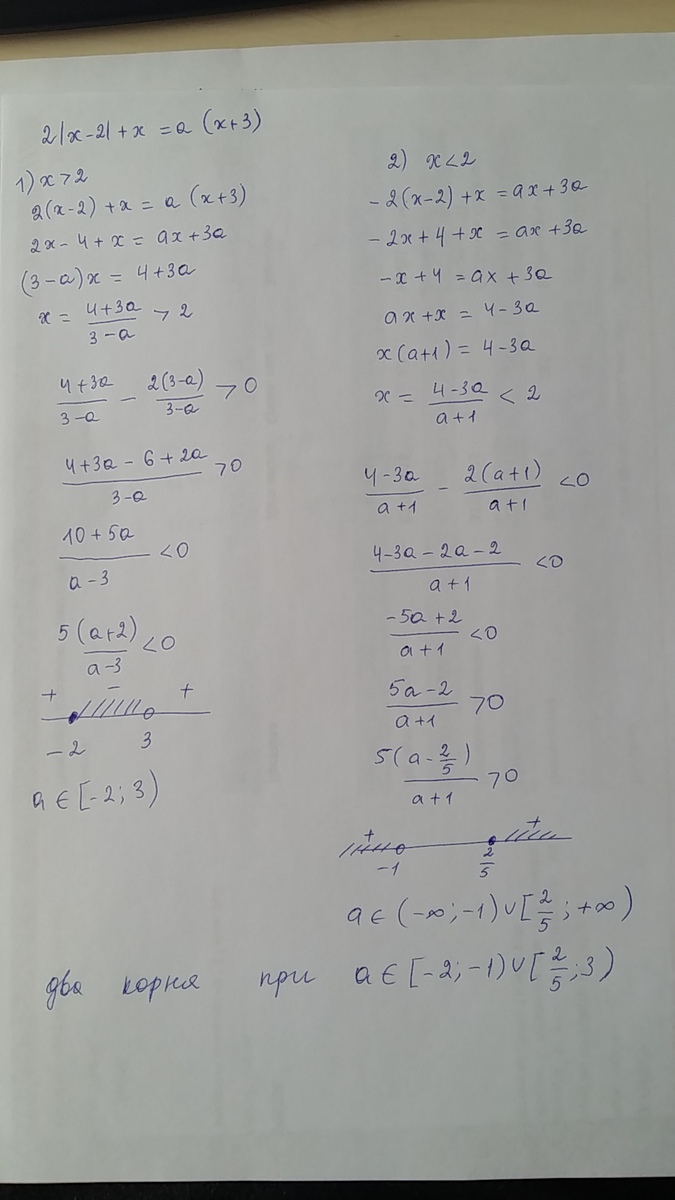 2|x-2|+x = a (x+3)
1) x > 2
2(x-2)+x = a (x+3)
2x-4+x = ax+3a
(3-a)x = 4+3a
x = \frac{4+3a}{3-a} > 2
\frac{4+3a}{3-a} - \frac{2(3-a)}{3-a} > 0
\frac{4+3a-6+2a}{3-a} > 0
\frac{10+5a}{a-3} < 0
\frac{5(a+2)}{a-3} < 0
+ - +
-2 3
a ∈ [-2; 3)
2) x < 2
-2(x-2)+x = ax+3a
-2x+4+x = ax+3a
-x+4 = ax+3a
ax+x = 4-3a
x(a+1) = 4-3a
x = \frac{4-3a}{a+1} < 2
\frac{4-3a}{a+1} - \frac{2(a+1)}{a+1} < 0
\frac{4-3a-2a-2}{a+1} < 0
\frac{-5a+2}{a+1} < 0
\frac{5a-2}{a+1} > 0
\frac{5(a-\frac{2}{5})}{a+1} > 0
+ +
-1 \frac{2}{5}
a ∈ (-∞; -1) ∪ [\frac{2}{5}; +∞)
два корня при a ∈ [-2; -1) ∪ [\frac{2}{5}; 3)